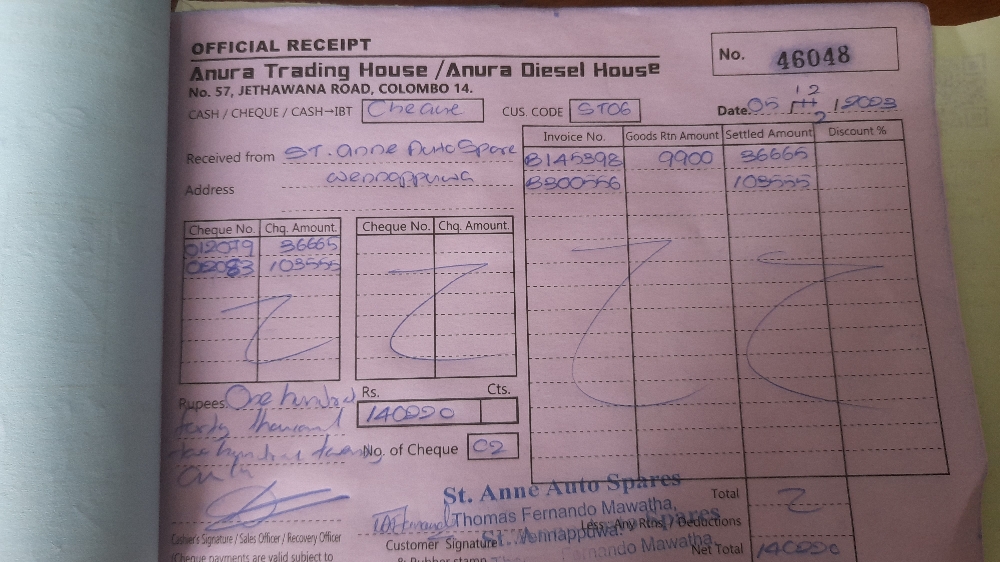 OFFICIAL RECEIPT
No. 46048
Anura Trading House / Anura Diesel House
No. 57, JETHAWANA ROAD, COLOMBO 14.
CASH / CHEQUE / CASH→IBT Cheque CUS. CODE ST06 Date: 05 12 / 2023
Received from ST. Anne Auto Spare
Address Wennappuwa
Invoice No. Goods Rtn Amount Settled Amount Discount %
B145398 9900 36665
B300556 103555
Cheque No. Chq. Amount. Cheque No. Chq. Amount.
012079 36665
103555
Rupees. One hundred
forty thousand
two hundred twenty
only
Rs. Cts.
140220
No. of Cheque 02
St. Anne Auto Spares
Thomas Fernando Mawatha,
Wennappuwa.
Spares
Fernando Mawatha,
Total
Less: Any Rtns / Deductions
Net Total 140220
Cashier's Signature / Sales Officer / Recovery Officer
Customer Signature
& Rubber stamp
*Cheque payments are valid subject to